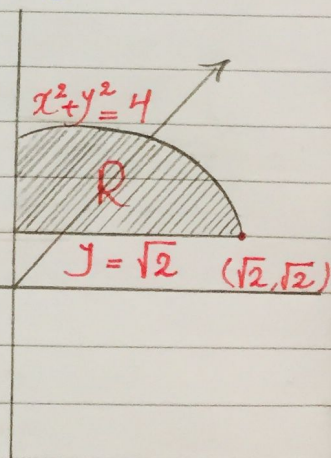 x²+y²=4
R
y = √2 (√2,√2)